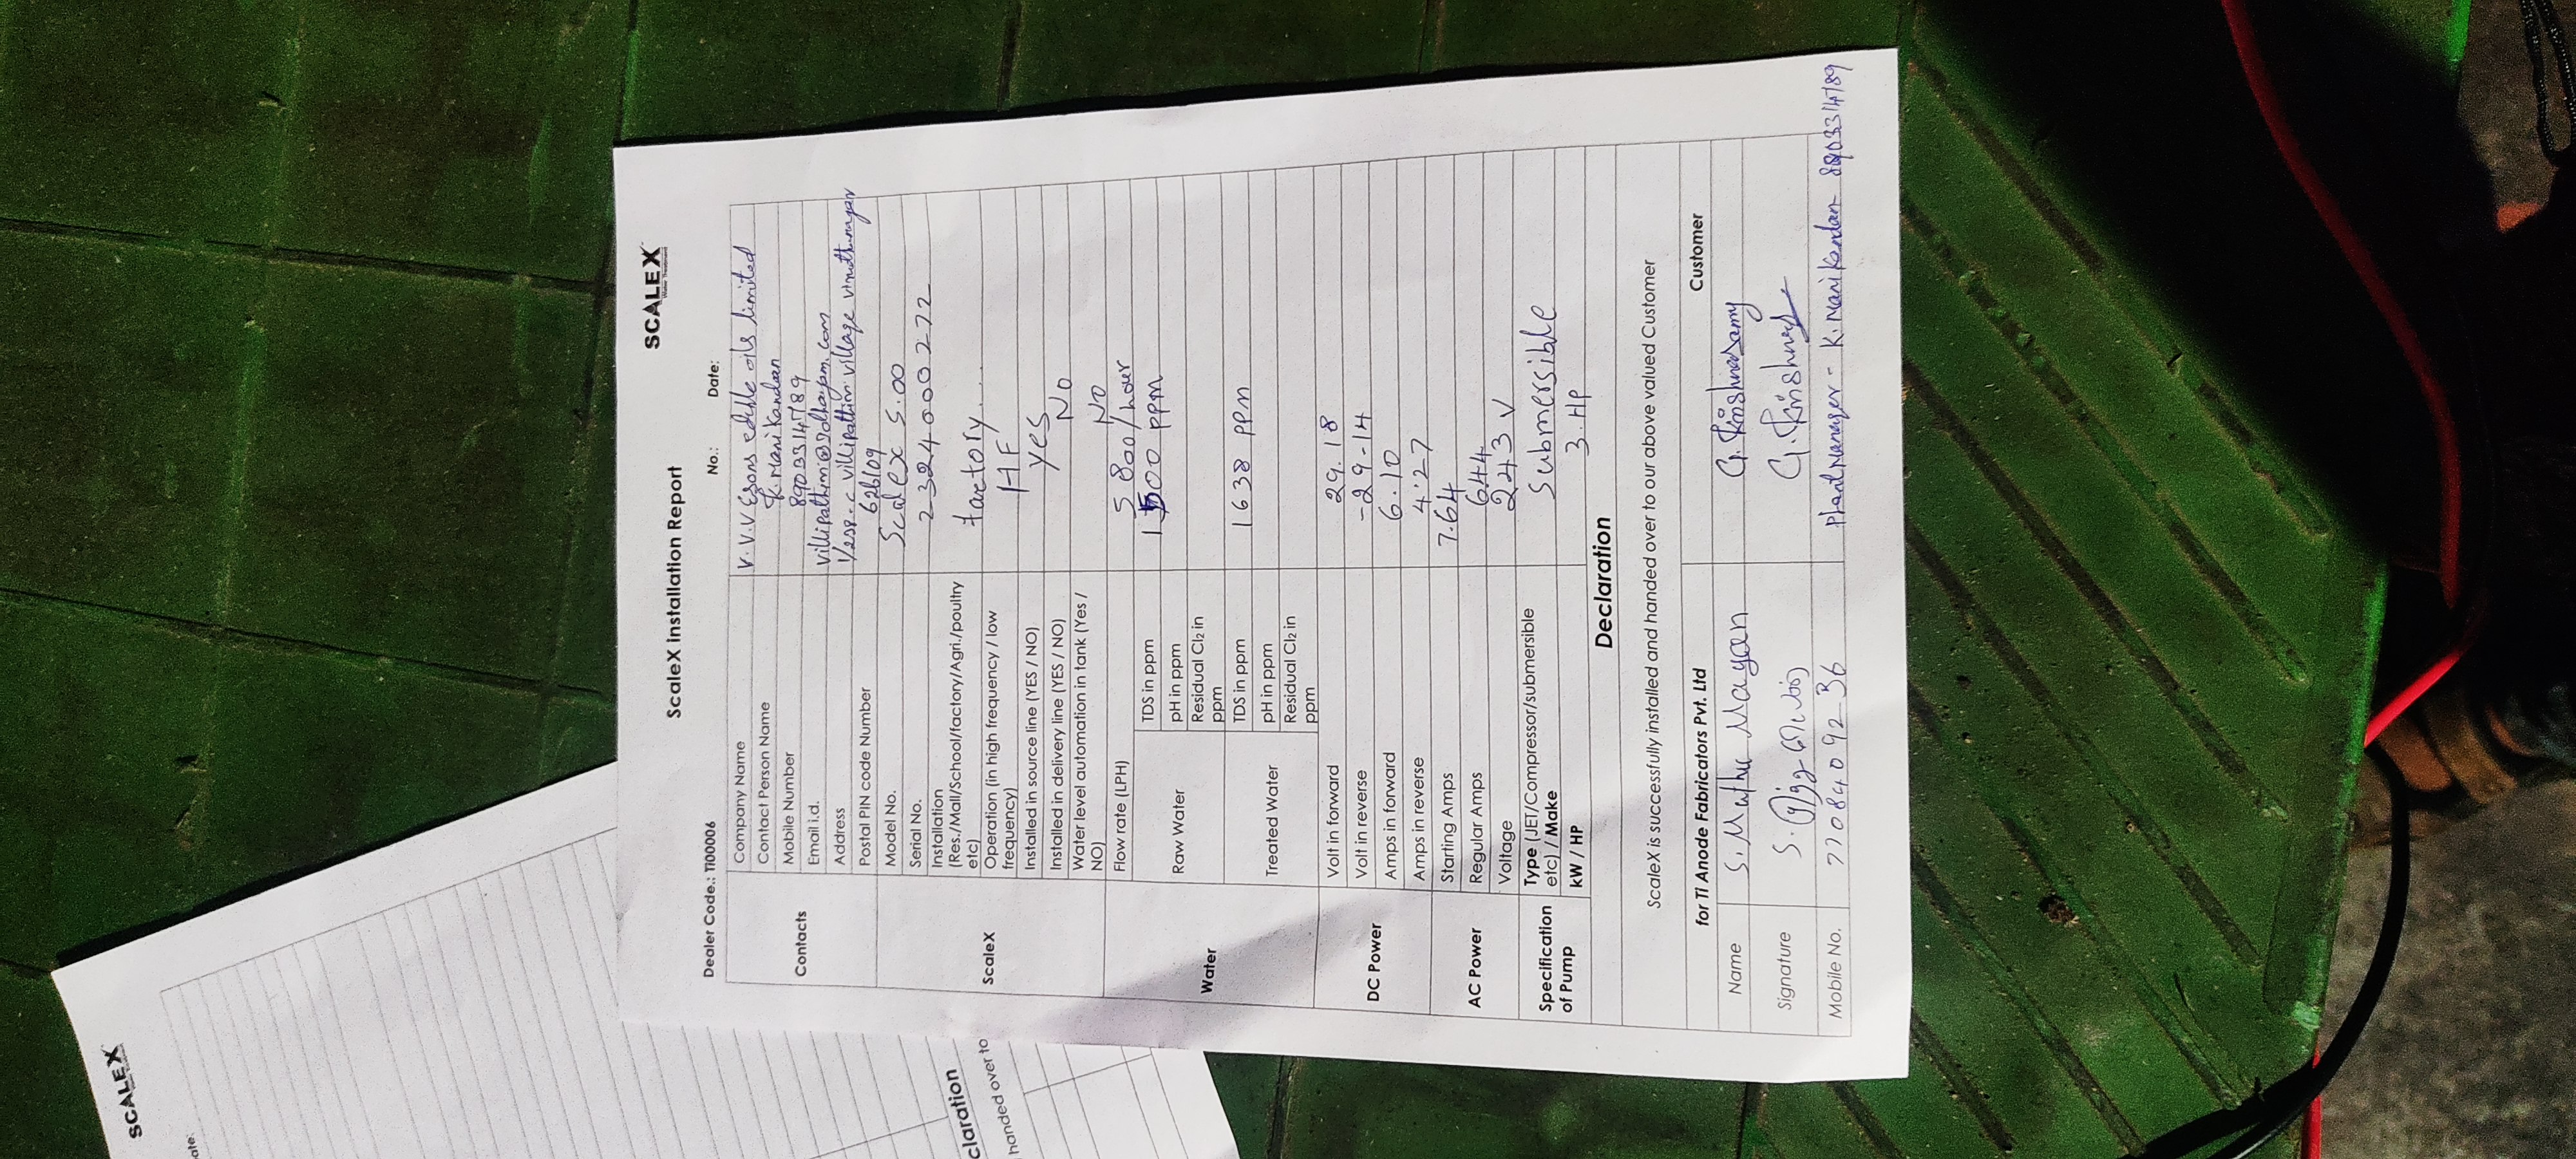 SCALEX
Water Treatment
ScaleX Installation Report
Dealer Code.: TI00006 No.: Date:
Contacts
Company Name V.V.V & sons edible oils limited
Contact Person Name K. Manikandan
Mobile Number 8903314789
Email i.d.
Address village
Postal PIN code Number 626109
ScaleX
Model No. Scalex 5.00
Serial No. 2324000272
Installation (Res./Mall/School/factory/Agri./poultry etc) factory....
Operation (in high frequency / low frequency) HF
Installed in source line (YES / NO) yes
Installed in delivery line (YES / NO) NO
Water level automation in tank (Yes / NO) NO
Water
Flow rate (LPH) 5800/hour
Raw Water
TDS in ppm 1500 ppm
pH in ppm
Residual Cl₂ in ppm
Treated Water
TDS in ppm 1638 ppm
pH in ppm
Residual Cl₂ in ppm
DC Power
Volt in forward 29.18
Volt in reverse -29-14
Amps in forward 6.10
Amps in reverse 4.27
AC Power
Starting Amps 7.64
Regular Amps 644
Voltage 243 V
Specification of Pump
Type (JET/Compressor/submersible etc) / Make Submersible
kW / HP 3.HP
Declaration
ScaleX is successfully installed and handed over to our above valued Customer
for Ti Anode Fabricators Pvt. Ltd Customer
Name S. Muthu Mayan G. Krishnasamy
Signature G. Krishnasy
Mobile No. 7708409236 Plant Manager - K. Manikandan 8903314789
SCALEX
ate:
claration
handed over to